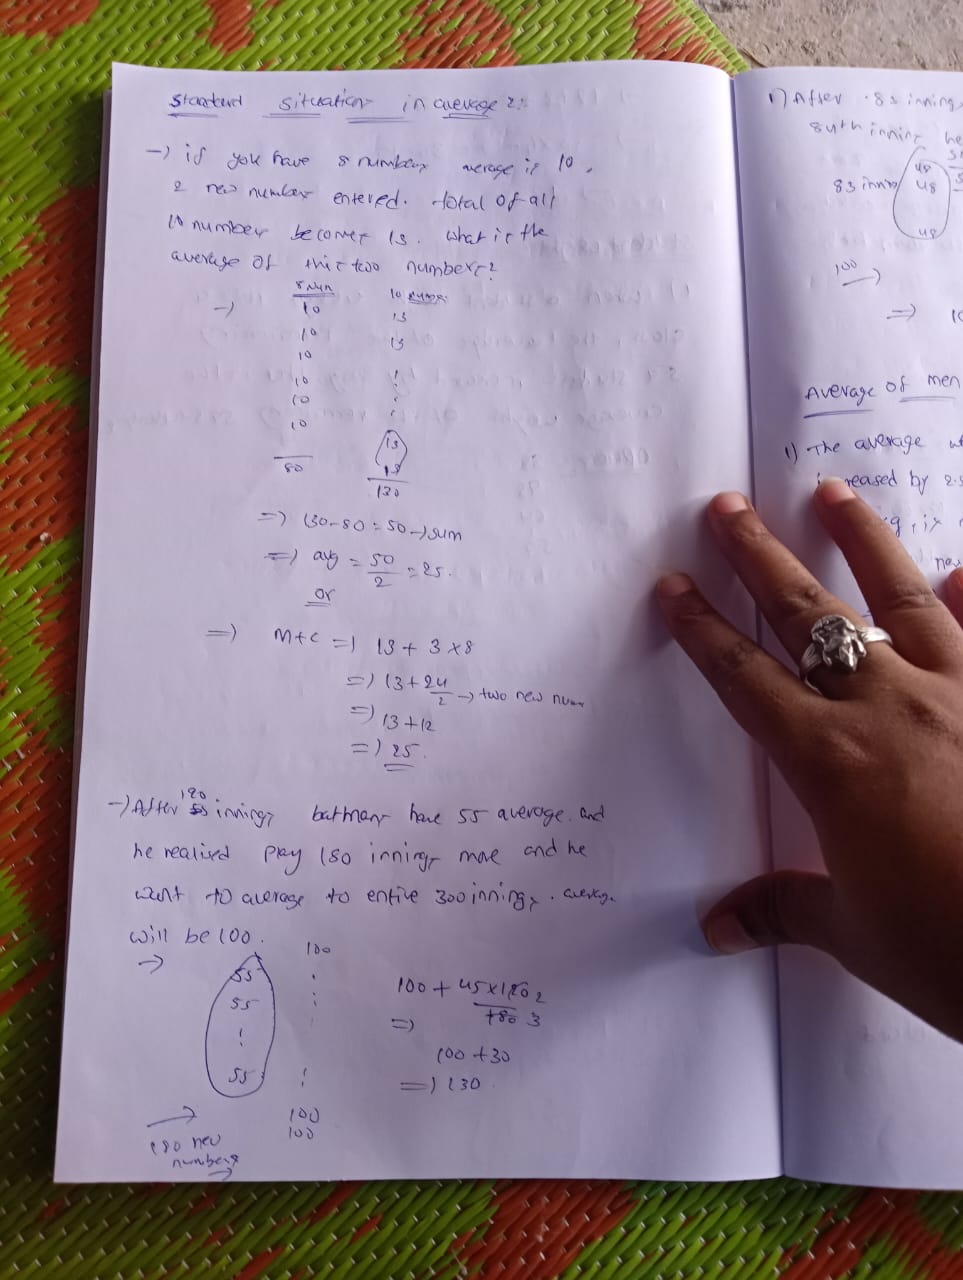 Standard situation in average 2:
-) if you have 8 numbers average is 10.
2 new number entered. total of all
10 number becomes 13. What is the
average of this two numbers?
-)
8 Num
10
10
10
10
10
10
80
10 nums
13
13
13
13
130
=) 130-80=50 -) sum
=) avg = 50/2 = 25.
or
=) M+C =) 13 + 3 x 8
=) 13 + 24/2 -) two new num
=) 13 + 12
=) 25.
-) After 120 innings batman have 55 average. and
he realised play 180 innings more and he
want to average to entire 300 innings. average
will be 100.
55
55
55
100
100
100
180 new
numbers
100 + 45x120 2
180 3
=)
100 + 30
=) 130
1) After 83 innings
84th inning he
83 innin
48
48
48
100
=) 10
Average of men
1) The average
reased by 2.5
new